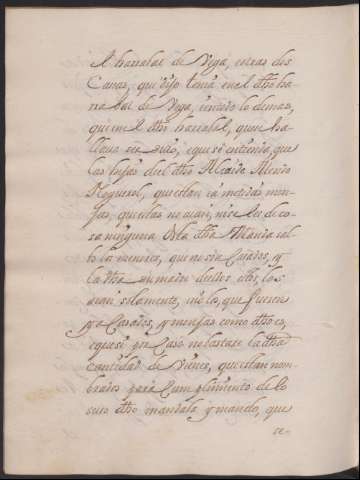 el harrabal de Vega, et otras dos
Casas, que dijo tenia en el dho ha-
rrabal de Vega, y todo lo demas,
que en el dho harrabal, que se ha-
llare ser suio, y que se entienda, que
las hijas del dho Alcaide Alonso
Noguerol, que estan ia metidas mon-
jas, que estas no aian, ni se les de co-
sa ninguna de la dha Manda sal-
bo las menores, que no son Casadas, y
la dha su madre dellos dhos, los
aian solamente, i no los, que fueren
ya Casados, y monjas como dho es,
y que si por caso no bastare la dha
cantidad de Vienes, que estan nom-
brados para Cumplimiento de lo
suso dho mandaba y mando, que
se-